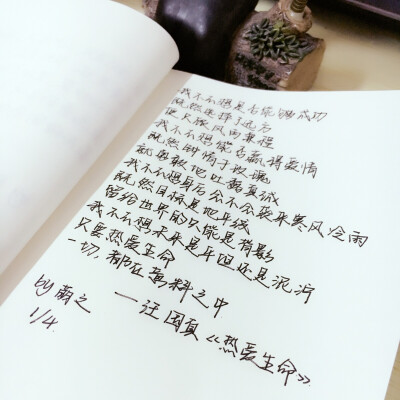 我不去想是否能够成功
既然选择了远方
便只顾风雨兼程
我不去想能否赢得爱情
既然钟情于玫瑰
就勇敢地吐露真诚
我不去想身后会不会袭来寒风冷雨
既然目标是地平线
留给世界的只能是背影
我不去想未来是平坦还是泥泞
只要热爱生命
一切,都在意料之中
—汪国真《热爱生命》
by
1/4.